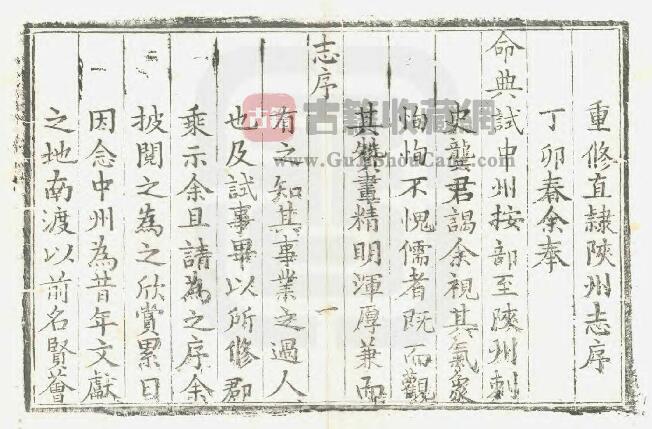 重修直隸陝州志序
丁卯春余奉
命典試中州按部至陝州刺
史龔君謁余視其氣象
恂恂不愧儒者既而觀
其贊畫精明渾厚兼而
志序
一
有之知其事業之過人
也及試事畢以所修郡
乘示余且請為之序余
披閱之為之欣賞累日
因念中州為昔年文獻
之地南渡以前名賢薈
古籍收藏網
www.GujiShouCang.com